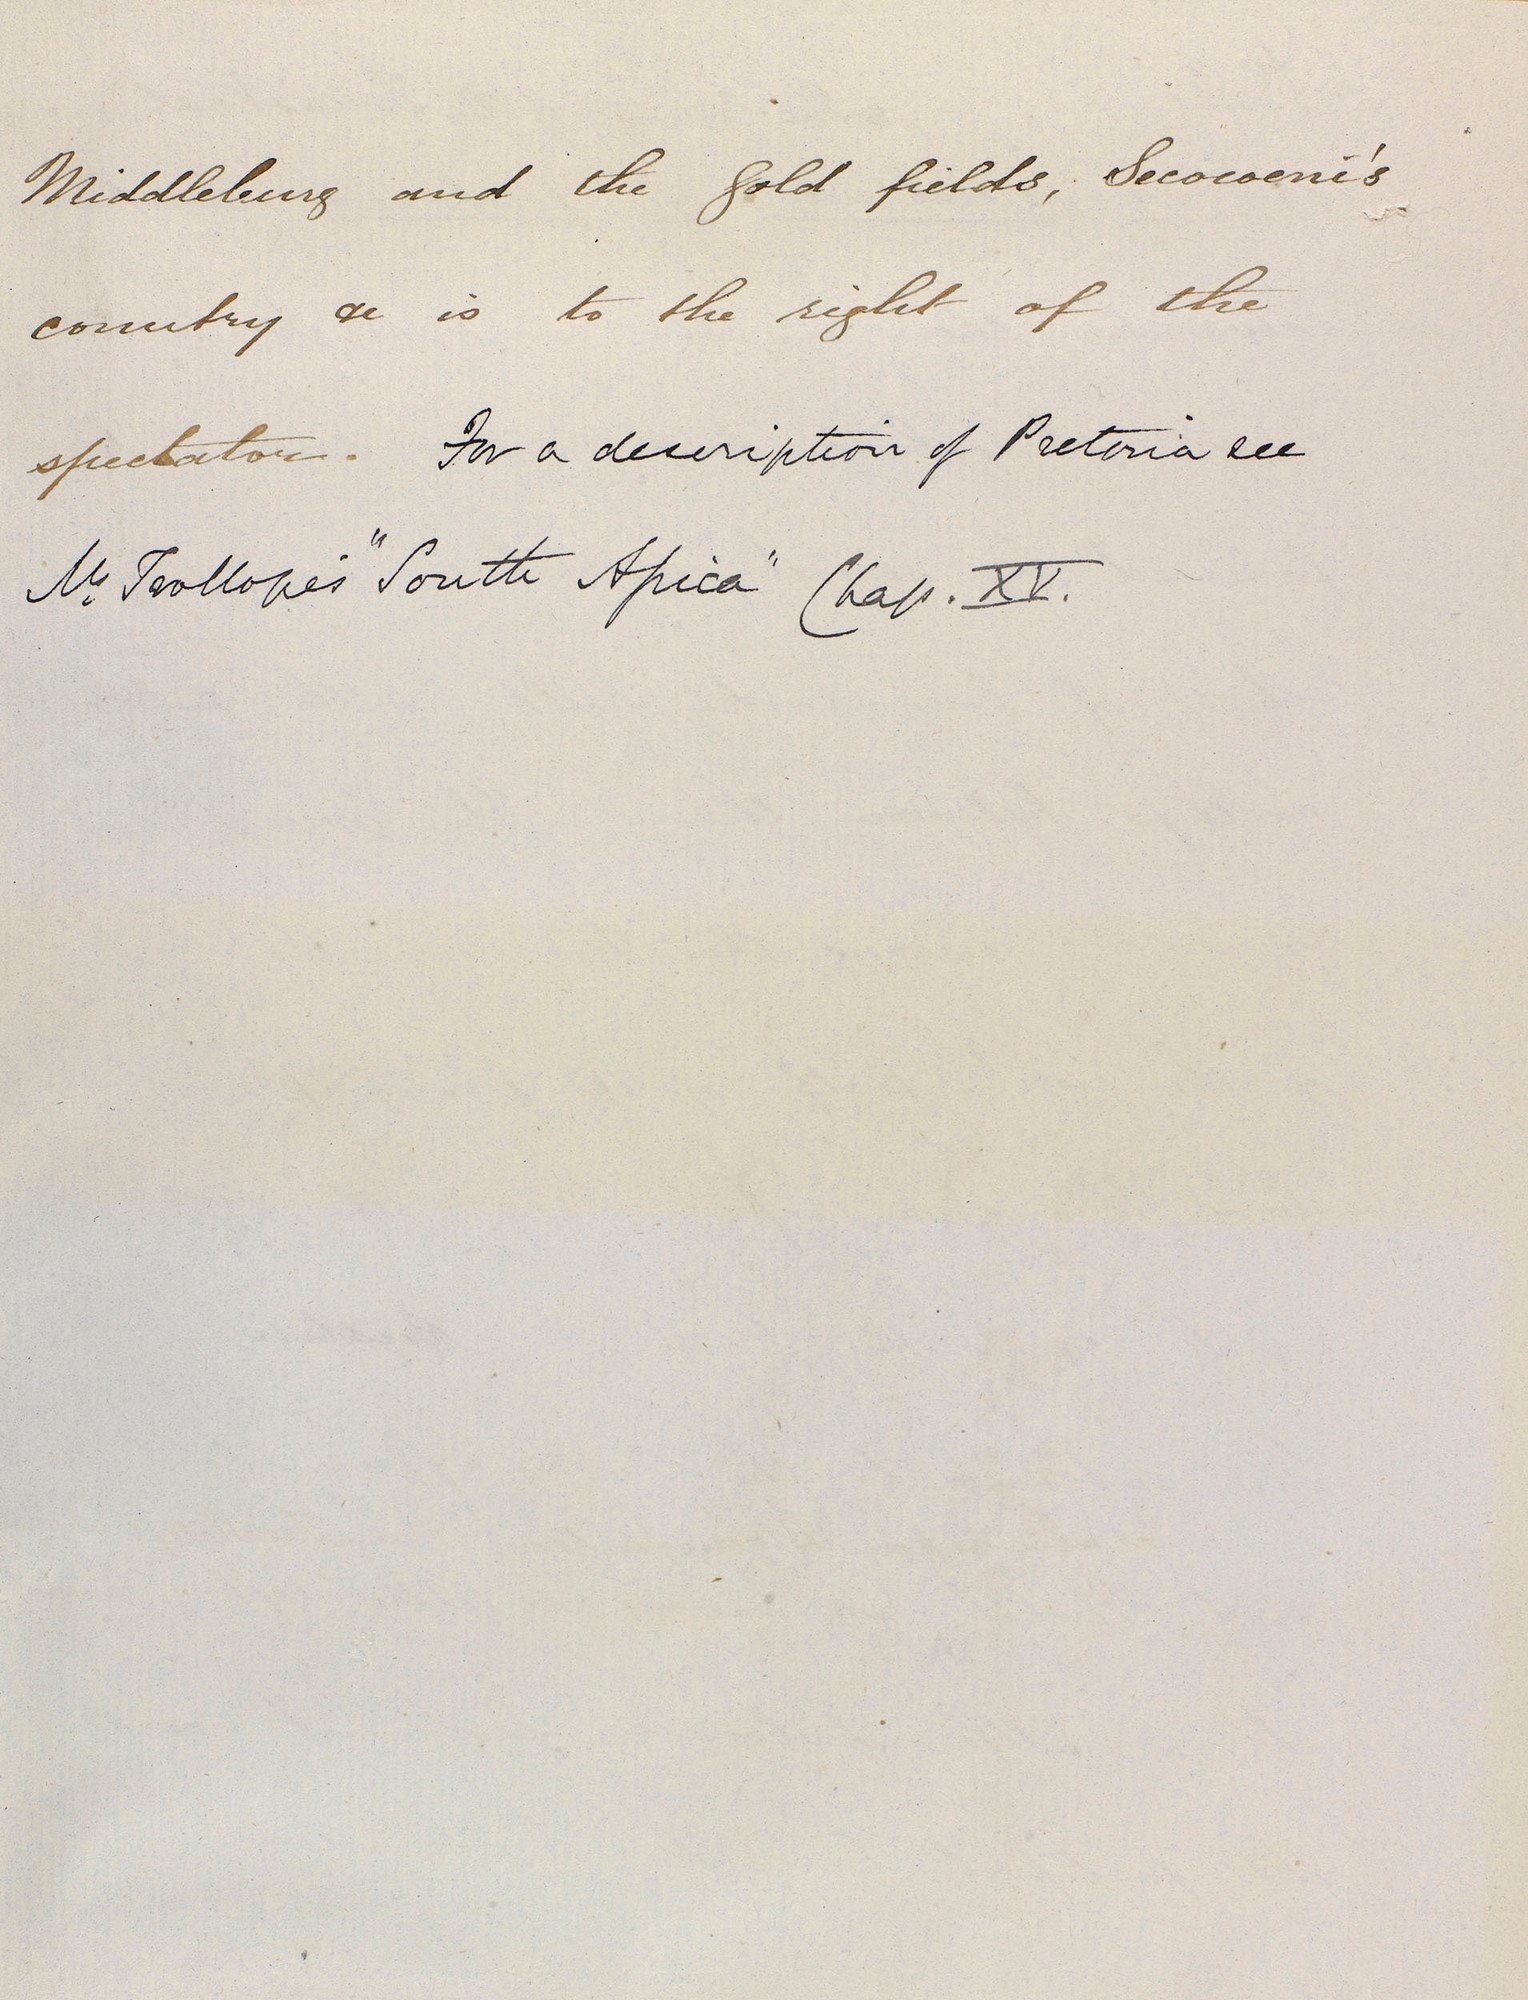 Middleburg and the gold fields, Secocoeni's
country &c is to the right of the
spectator. For a description of Pretoria see
Mr Trollope's "South Africa" Chap. XV.